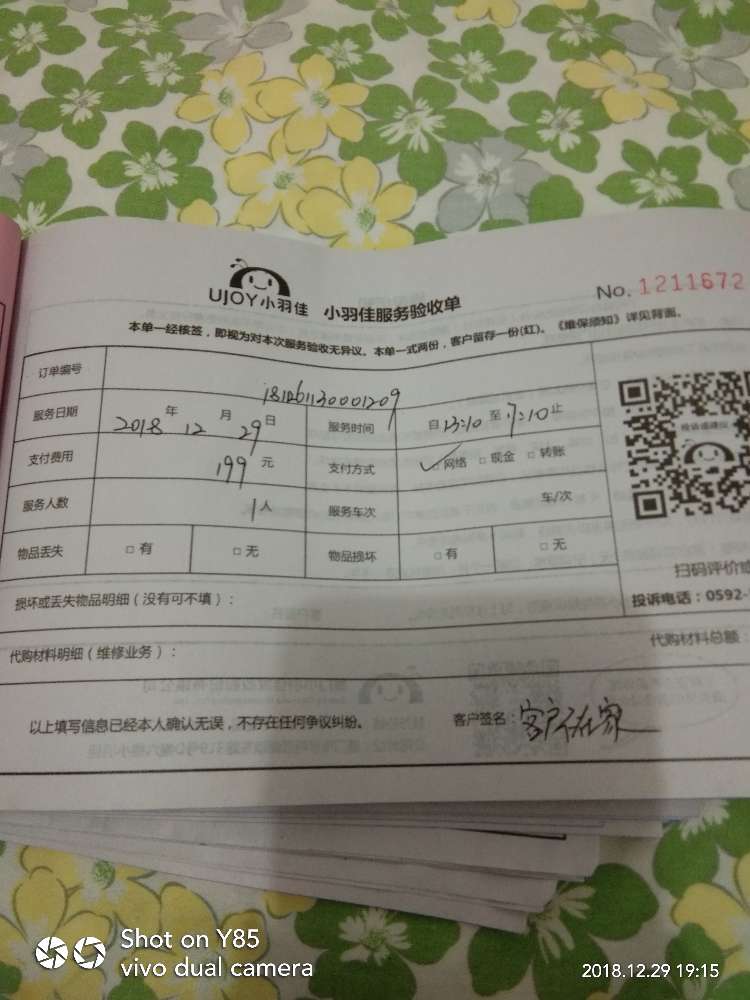 UJOY小羽佳 小羽佳服务验收单 No. 1211672
本单一经核签，即视为对本次服务验收无异议。本单一式两份，客户留存一份(红)。《维保须知》详见背面。
订单编号 181261130001209
服务日期 2018 年 12 月 29 日 服务时间 自 13:10 至 17:10 止
支付费用 199 元 支付方式 ✓ 网络 □ 现金 □ 转账
服务人数 1 人 服务车次 车/次
物品丢失 □ 有 □ 无 物品损坏 □ 有 □ 无
扫码评价或
损坏或丢失物品明细（没有可不填）： 投诉电话：0592-
代购材料明细（维修业务）： 代购材料总额
以上填写信息已经本人确认无误，不存在任何争议纠纷。 客户签名：客户不在家
Shot on Y85
vivo dual camera
2018.12.29 19:15